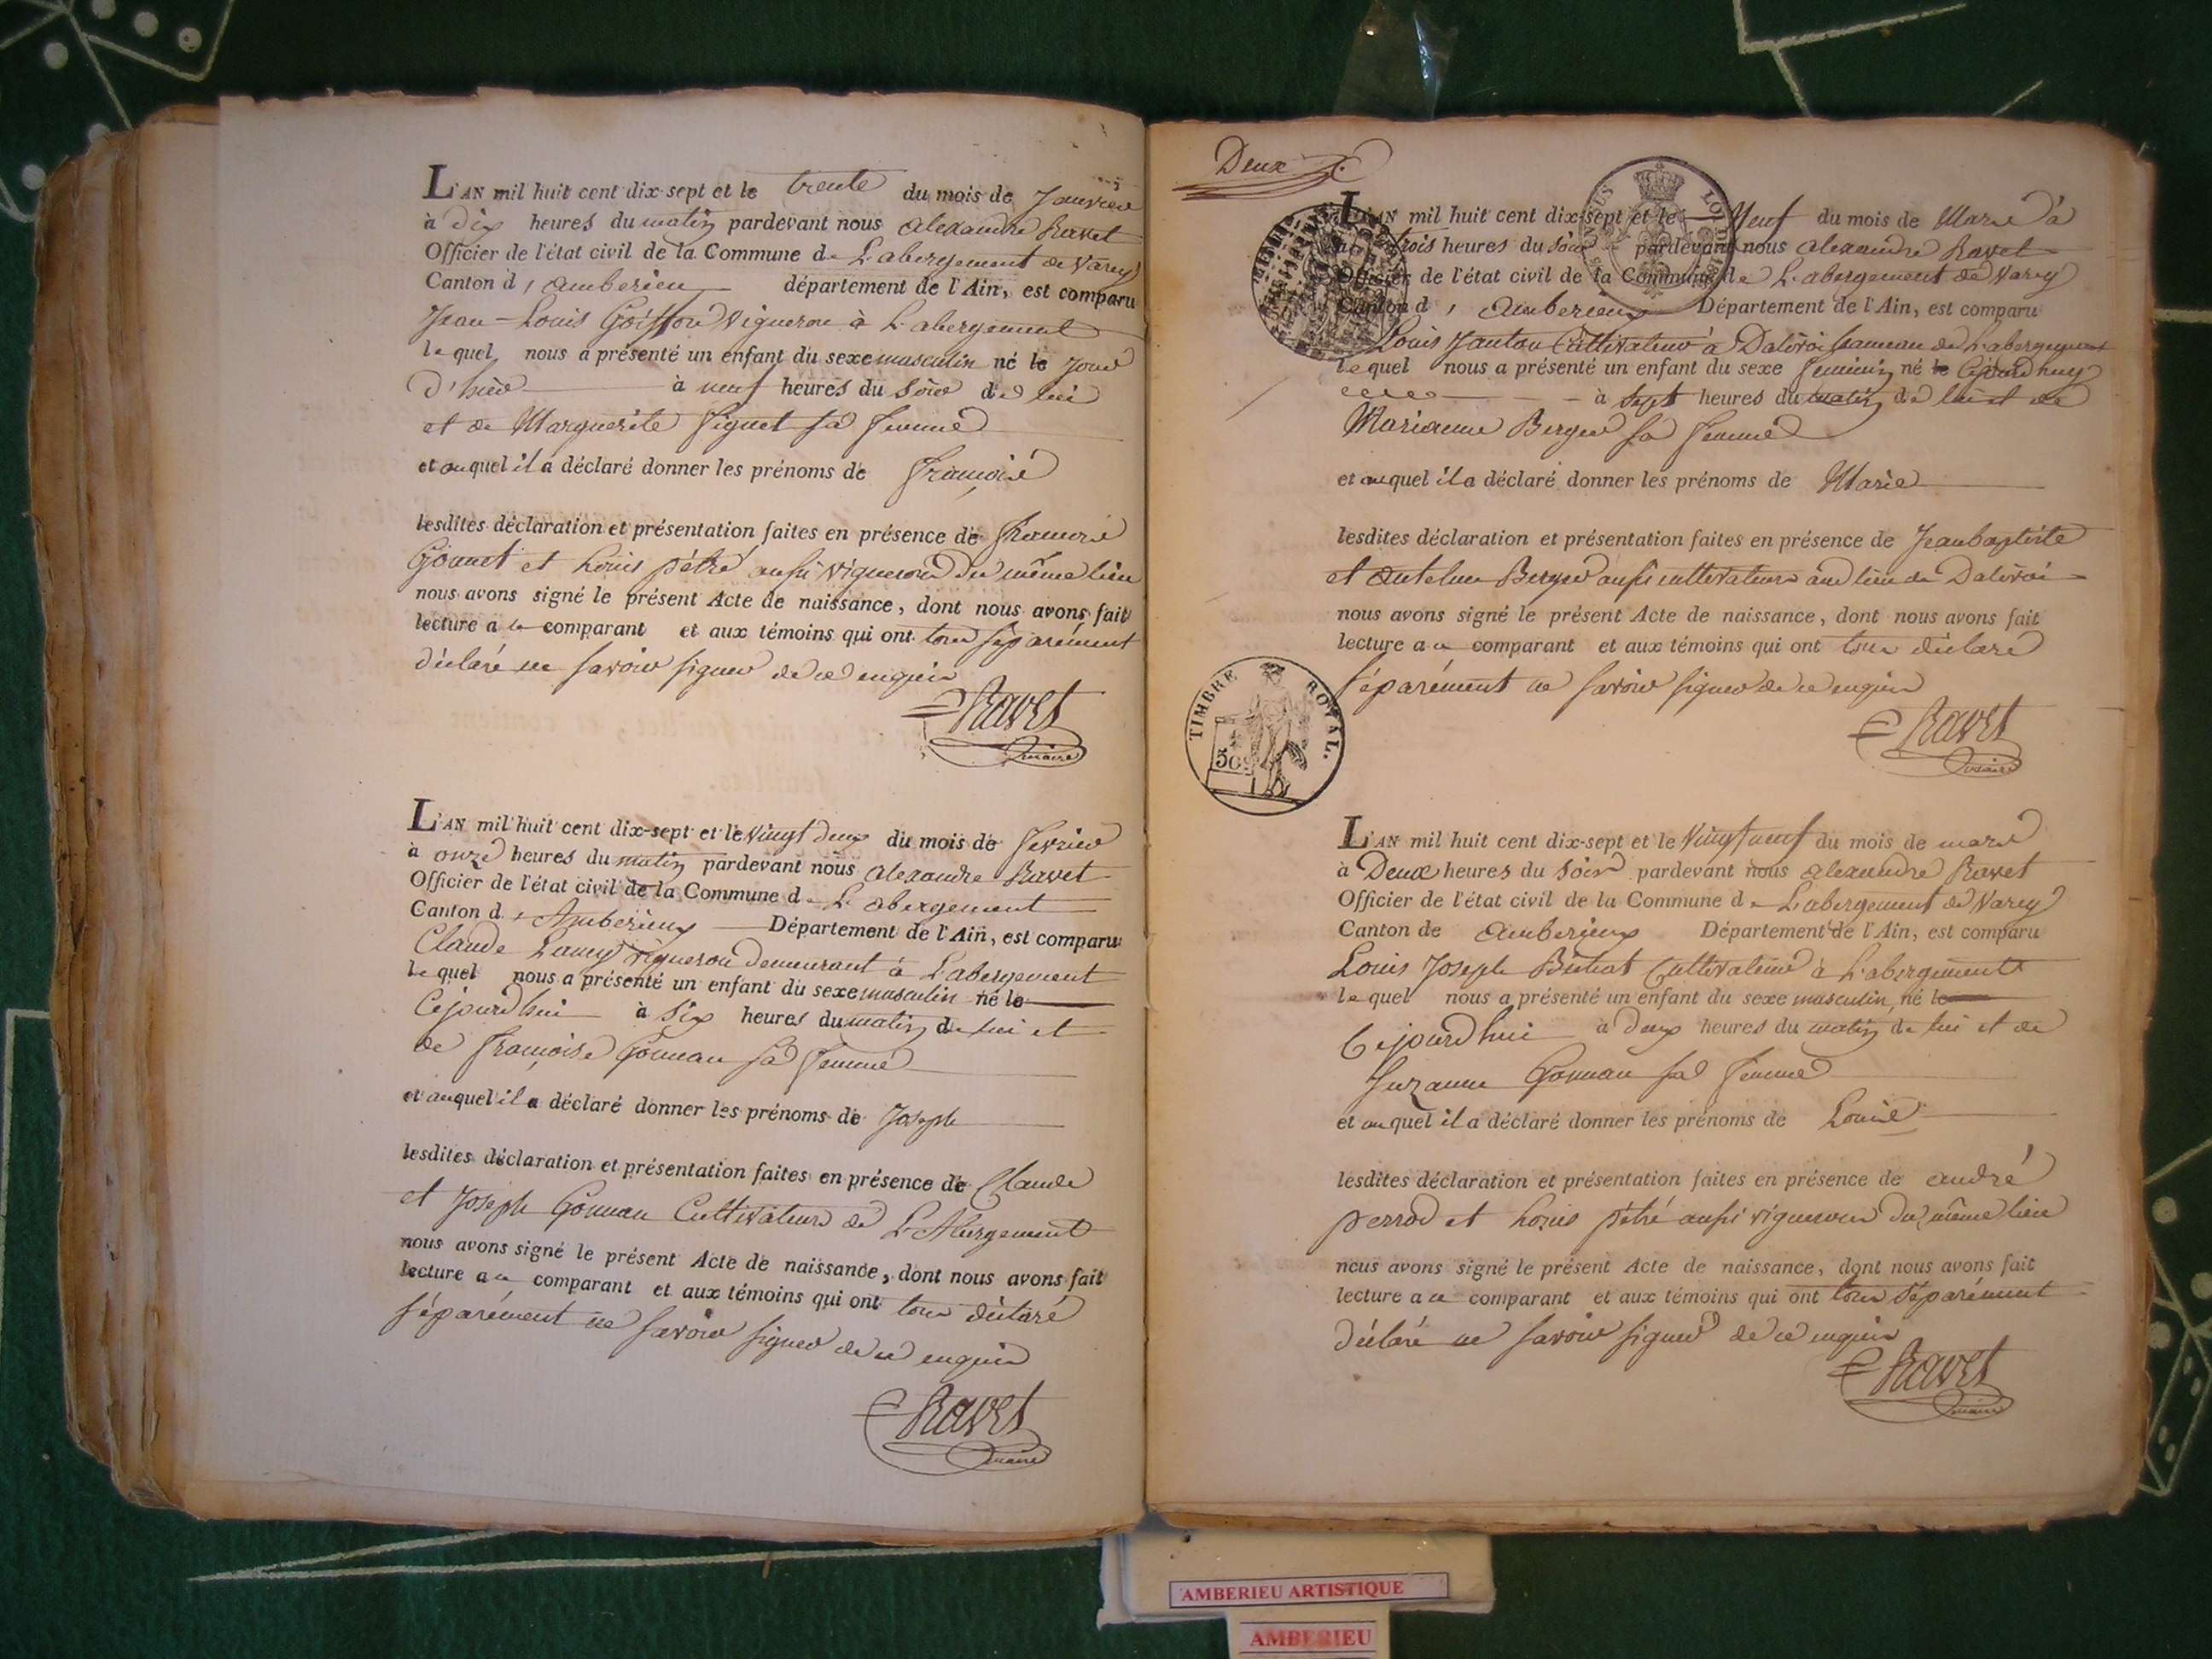 L'AN mil huit cent dix-sept et le trente du mois de Janvier
à dix heures du matin pardevant nous alexandre Ravet
Officier de l'état civil de la Commune de L'abergement de Varey
Canton d'amberieux département de l'Ain, est comparu
Jean-Louis Goiffon vigneron à L'abergement
lequel nous a présenté un enfant du sexe masculin né le jour
d'hier à neuf heures du soir de lui
et de Marguerite Figuet sa femme
et auquel il a déclaré donner les prénoms de françois
lesdites déclaration et présentation faites en présence de françois
Gonnet et Louis pétré aussi vignerons du même lieu
nous avons signé le présent Acte de naissance, dont nous avons fait
lecture a ce comparant et aux témoins qui ont tous séparément
déclaré ne savoir signer de ce enquis
Ravet
maire
L'AN mil huit cent dix-sept et le vingt deux du mois de fevrier
à onze heures du matin pardevant nous alexandre Ravet
Officier de l'état civil de la Commune de L'abergement
Canton d'Amberieux Département de l'Ain, est comparu
Claude Lamy vigneron demeurant à L'abergement
lequel nous a présenté un enfant du sexe masculin né le
Cejourd'hui à six heures du matin de lui et
de françoise Gonnan sa femme
et auquel il a déclaré donner les prénoms de Joseph
lesdites déclaration et présentation faites en présence de Claude
et Joseph Gonnan Cultivateurs de L'Abergement
nous avons signé le présent Acte de naissance, dont nous avons fait
lecture a ce comparant et aux témoins qui ont tous déclaré
séparément ne savoir signer de ce enquis
Ravet
maire
Deux
L'AN mil huit cent dix-sept et le Neuf du mois de Mars à
trois heures du soir pardevant nous alexandre Ravet
Officier de l'état civil de la Commune de L'abergement de Varey
Canton d'amberieux Département de l'Ain, est comparu
Louis Janton Cultivateur à Dalivoi hameau de L'abergement
lequel nous a présenté un enfant du sexe feminin né le Cejourdhuy
à sept heures du matin de lui et de
Marianne Berger sa femme
et auquel il a déclaré donner les prénoms de Marie
lesdites déclaration et présentation faites en présence de Jeanbaptiste
et antelme Berger aussi cultivateurs aud lieu de Dalivoi
nous avons signé le présent Acte de naissance, dont nous avons fait
lecture a ce comparant et aux témoins qui ont tous déclaré
séparément ne savoir signer de ce enquis
TIMBRE ROYAL.
50
Ravet
maire
L'AN mil huit cent dix-sept et le vingt neuf du mois de mars
à Deux heures du soir pardevant nous alexandre Ravet
Officier de l'état civil de la Commune de L'abergement de Varey
Canton de amberieux Département de l'Ain, est comparu
Louis Joseph Bichat Cultivateur à L'abergement
lequel nous a présenté un enfant du sexe masculin né le
Cejourd'hui à deux heures du matin de lui et de
Suzanne Gonnan sa femme
et auquel il a déclaré donner les prénoms de Louis
lesdites déclaration et présentation faites en présence de andré
perrod et Louis pétré aussi vignerons du même lieu
nous avons signé le présent Acte de naissance, dont nous avons fait
lecture a ce comparant et aux témoins qui ont tous séparément
déclaré ne savoir signer de ce enquis
Ravet
maire
AMBERIEU ARTISTIQUE
AMBERIEU